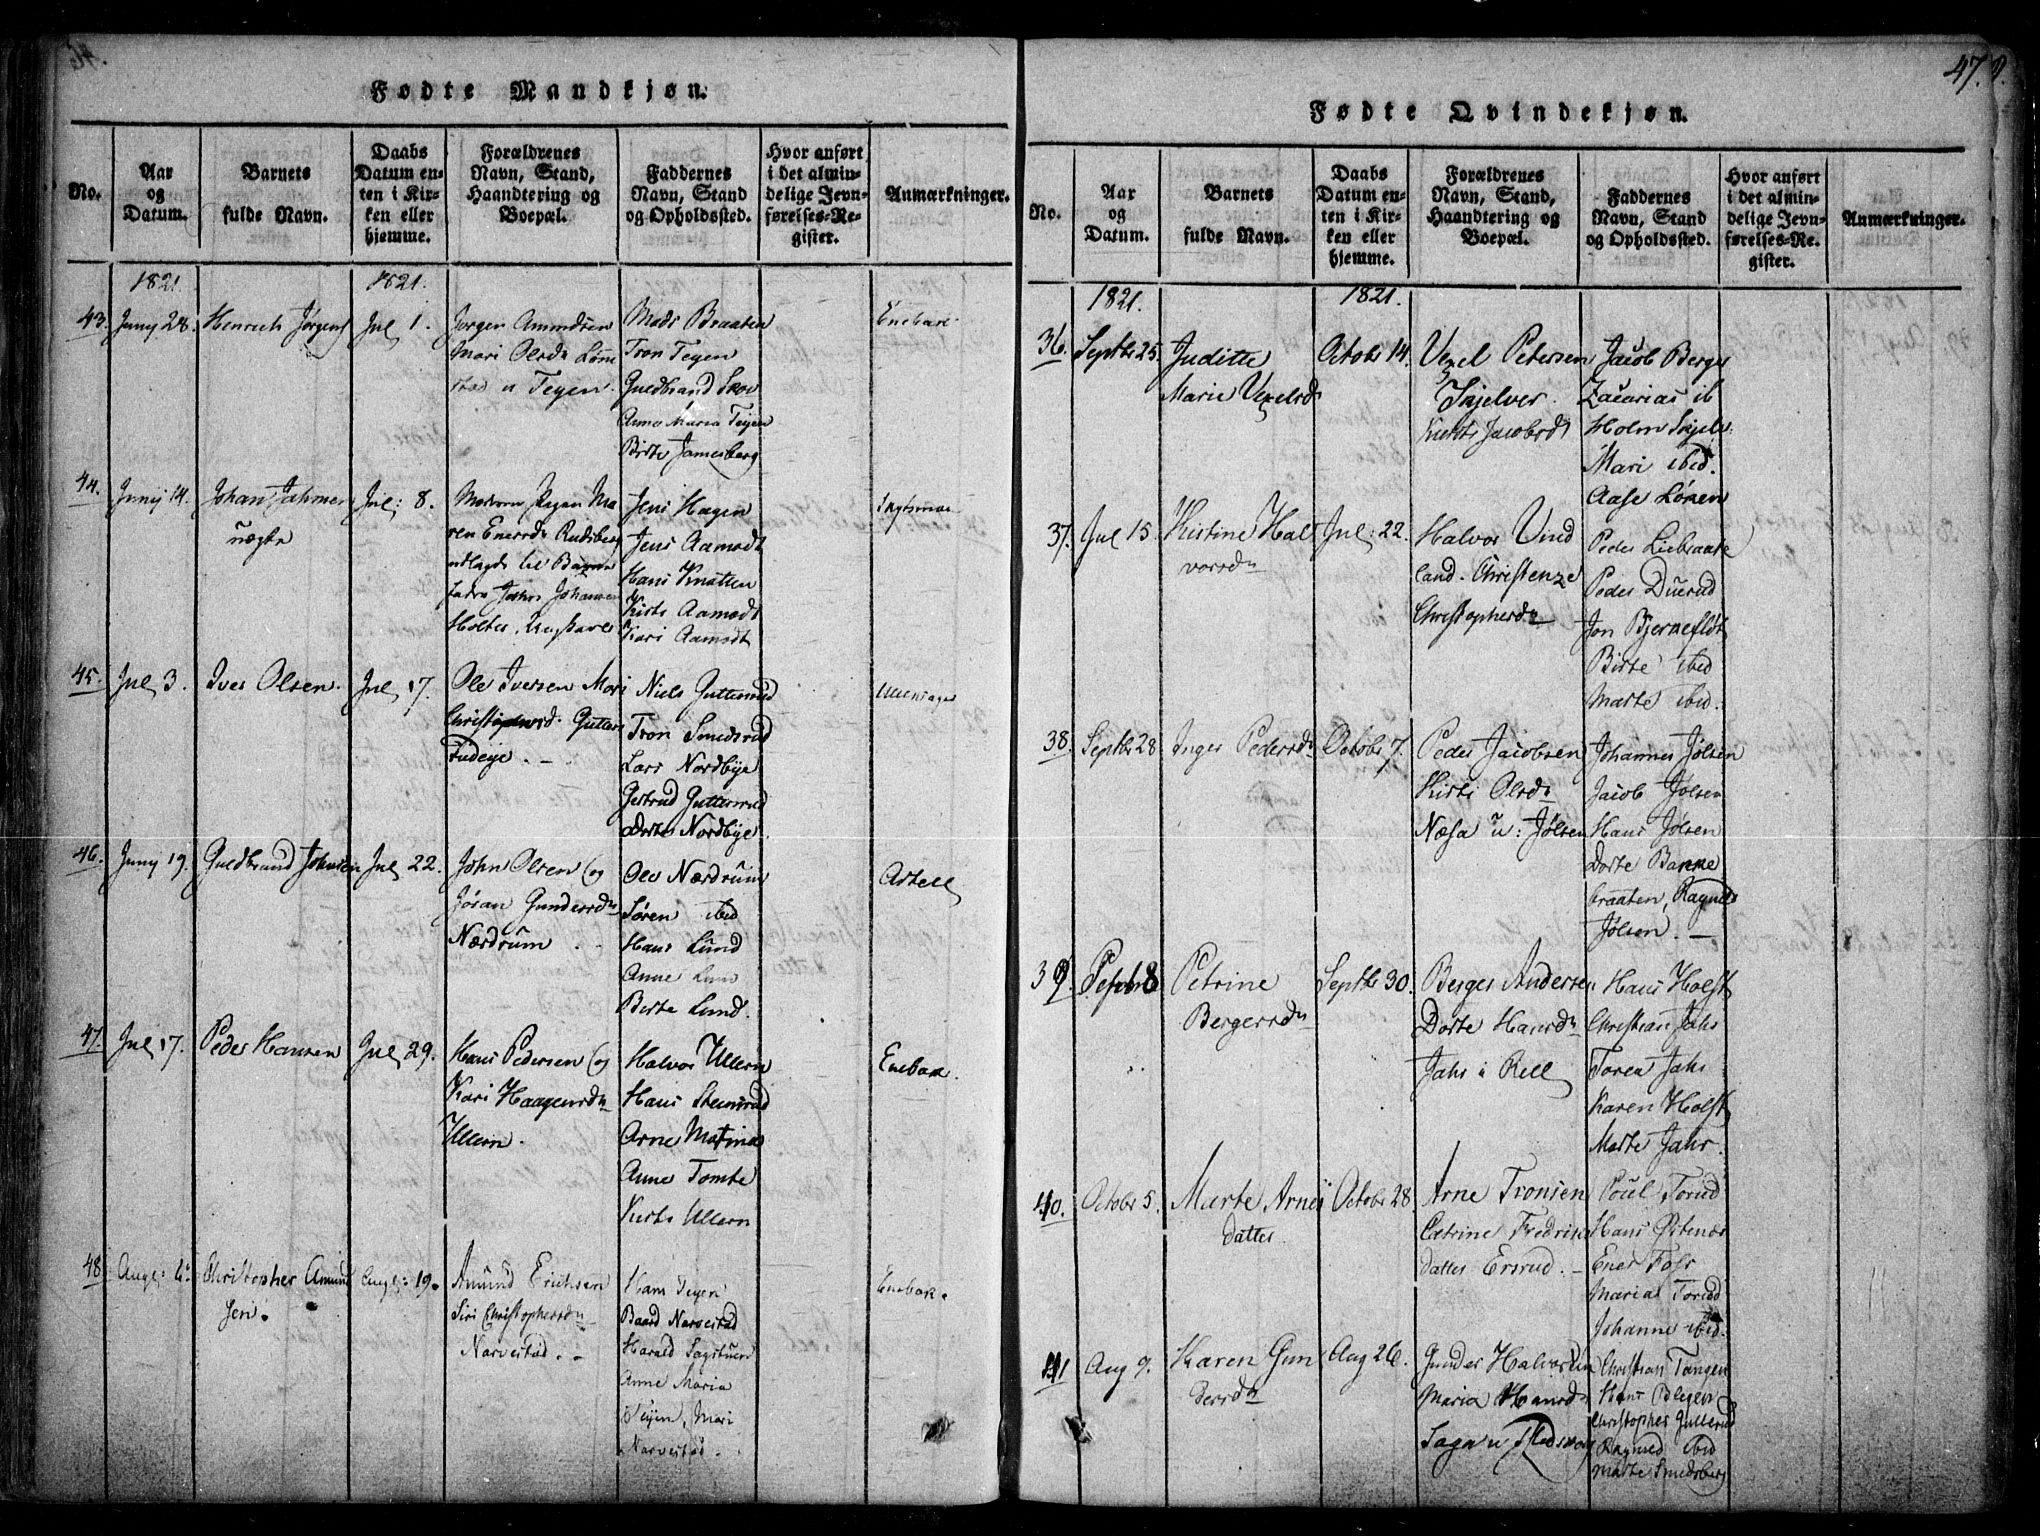 Fødte Mandkjøn.
No.
Aar og Datum.
Barnets fulde Navn.
Daabs Datum en-
ten i Kir-
ken eller
hjemme.
Forældrenes
Navn, Stand,
Haandtering og
Boepæl.
Faddernes
Navn, Stand
og Opholdssted.
Hvor anført
i det almin-
delige Jevn-
førelses-Re-
gister.
Anmærkninger.
1821
1821.
43.
Juny 28.
Henrich Jørgens
Jul 1.
Jørgen Amundsen
Mari Olsdr
Tegen.
Mads Braaten
Tron Tegen
Guldbrand Skov
Anne Maria Teijen
Birte
Enebak
44.
Junij 14.
Johan
uægte
Jul: 8.
Jens Hagen
Jens Aamodt
Hans Knatten
Kirsti Aamodt
Kari Aamodt
45.
Jul 3.
Iver Olsen.
Jul 17.
Ole Iversen Mari
Niels Gutterud
Tron Smedsrud
Lars Nordbye
Gertrud Gutterud
Dorte Nordbye.
Ullensager
46.
Juny 19.
Guldbrand Johnsen
Jul 22.
John Olsen og
Jøran Gundersdr
Nærdrum
Ole Nærdrum
Søren ibid
Hans Lund
Anne Lun
Birte Lund.
47.
Jul 17.
Peder Hansen
Jul 29.
Hans Pedersen og
Kari Haagensdr
Ullern.
Halvor Ullern
Hans Steinsrud
Arne
Anne Tomte
Kirsti Ullern
Enebak.
48
Aug:
Christopher Amund
sen.
Aug: 19.
Amund Erichsen
Siri Christophersdr
Narvestad.
Hans Tegen
Baard Narvestad
Harald Sagstuen
Anne Maria
Teijen, Mari
Narvestad.
Enebak.
47.
Fødte Qvindekjøn.
No.
Aar og Datum.
Barnets fulde Navn.
Daabs Datum en-
ten i Kir-
ken eller
hjemme.
Forældrenes
Navn, Stand,
Haandtering og
Boepæl.
Faddernes
Navn, Stand
og Opholdssted.
Hvor anført
i det almin-
delige Jevn-
førelses-Re-
gister.
Anmærkninger.
1821.
1821.
36.
Septbr 25
Juditte
Marie Vexelsd
Octobr 14.
Vexel Petersen
Skjelver.
Kirsti Jacobsd
Jacob Berger
Zacarias ib
Holm
Mari ibid.
Aase Lønen
37.
Jul 15.
Kistine Hal
vorsdr
Jul: 22.
Halvor Vind
land. Christenze
Christophersdr
Peder
Peder Duerud
Jon
Birte ibid
Marte ibid.
38.
Septbr 28
Inger Pedersdr
Octobr 7.
Peder Jacobsen
Kirsti Olsdr
Næsa u: Jølsen
Johannes Jølsen
Jacob Jølsen
Hans Jølsen
Dorte Bakke
braaten, Ragnild
Jølsen.
39.
Septbr 8
Petrine
Bergersdr
Septbr 30.
Berger Andersen
Dorte Hansdr
Jahr i Rell
Hans Holst
Christian Jahr
Torer Jahr
Karen Holst
Marte Jahr.
40.
Octobr 5.
Marte Arnes
datter
Octobr 28
Arne Tronsen
Catrine Fredrics
datter Ersrud.
Poul Torud
Hans Østenør
Ener Foss
Maria Torud
Johanne ibid.
41
Aug 9.
Karen Gun
dersdr
Aug 26.
Gunder Halvorsen
Maria Hansd
Saga u
Christian Tangen
Christopher Gullerud
Ragnild ibid
Marte Smedsberg